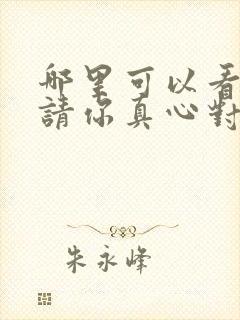 哪里可以看
請你真心對
朱永峰